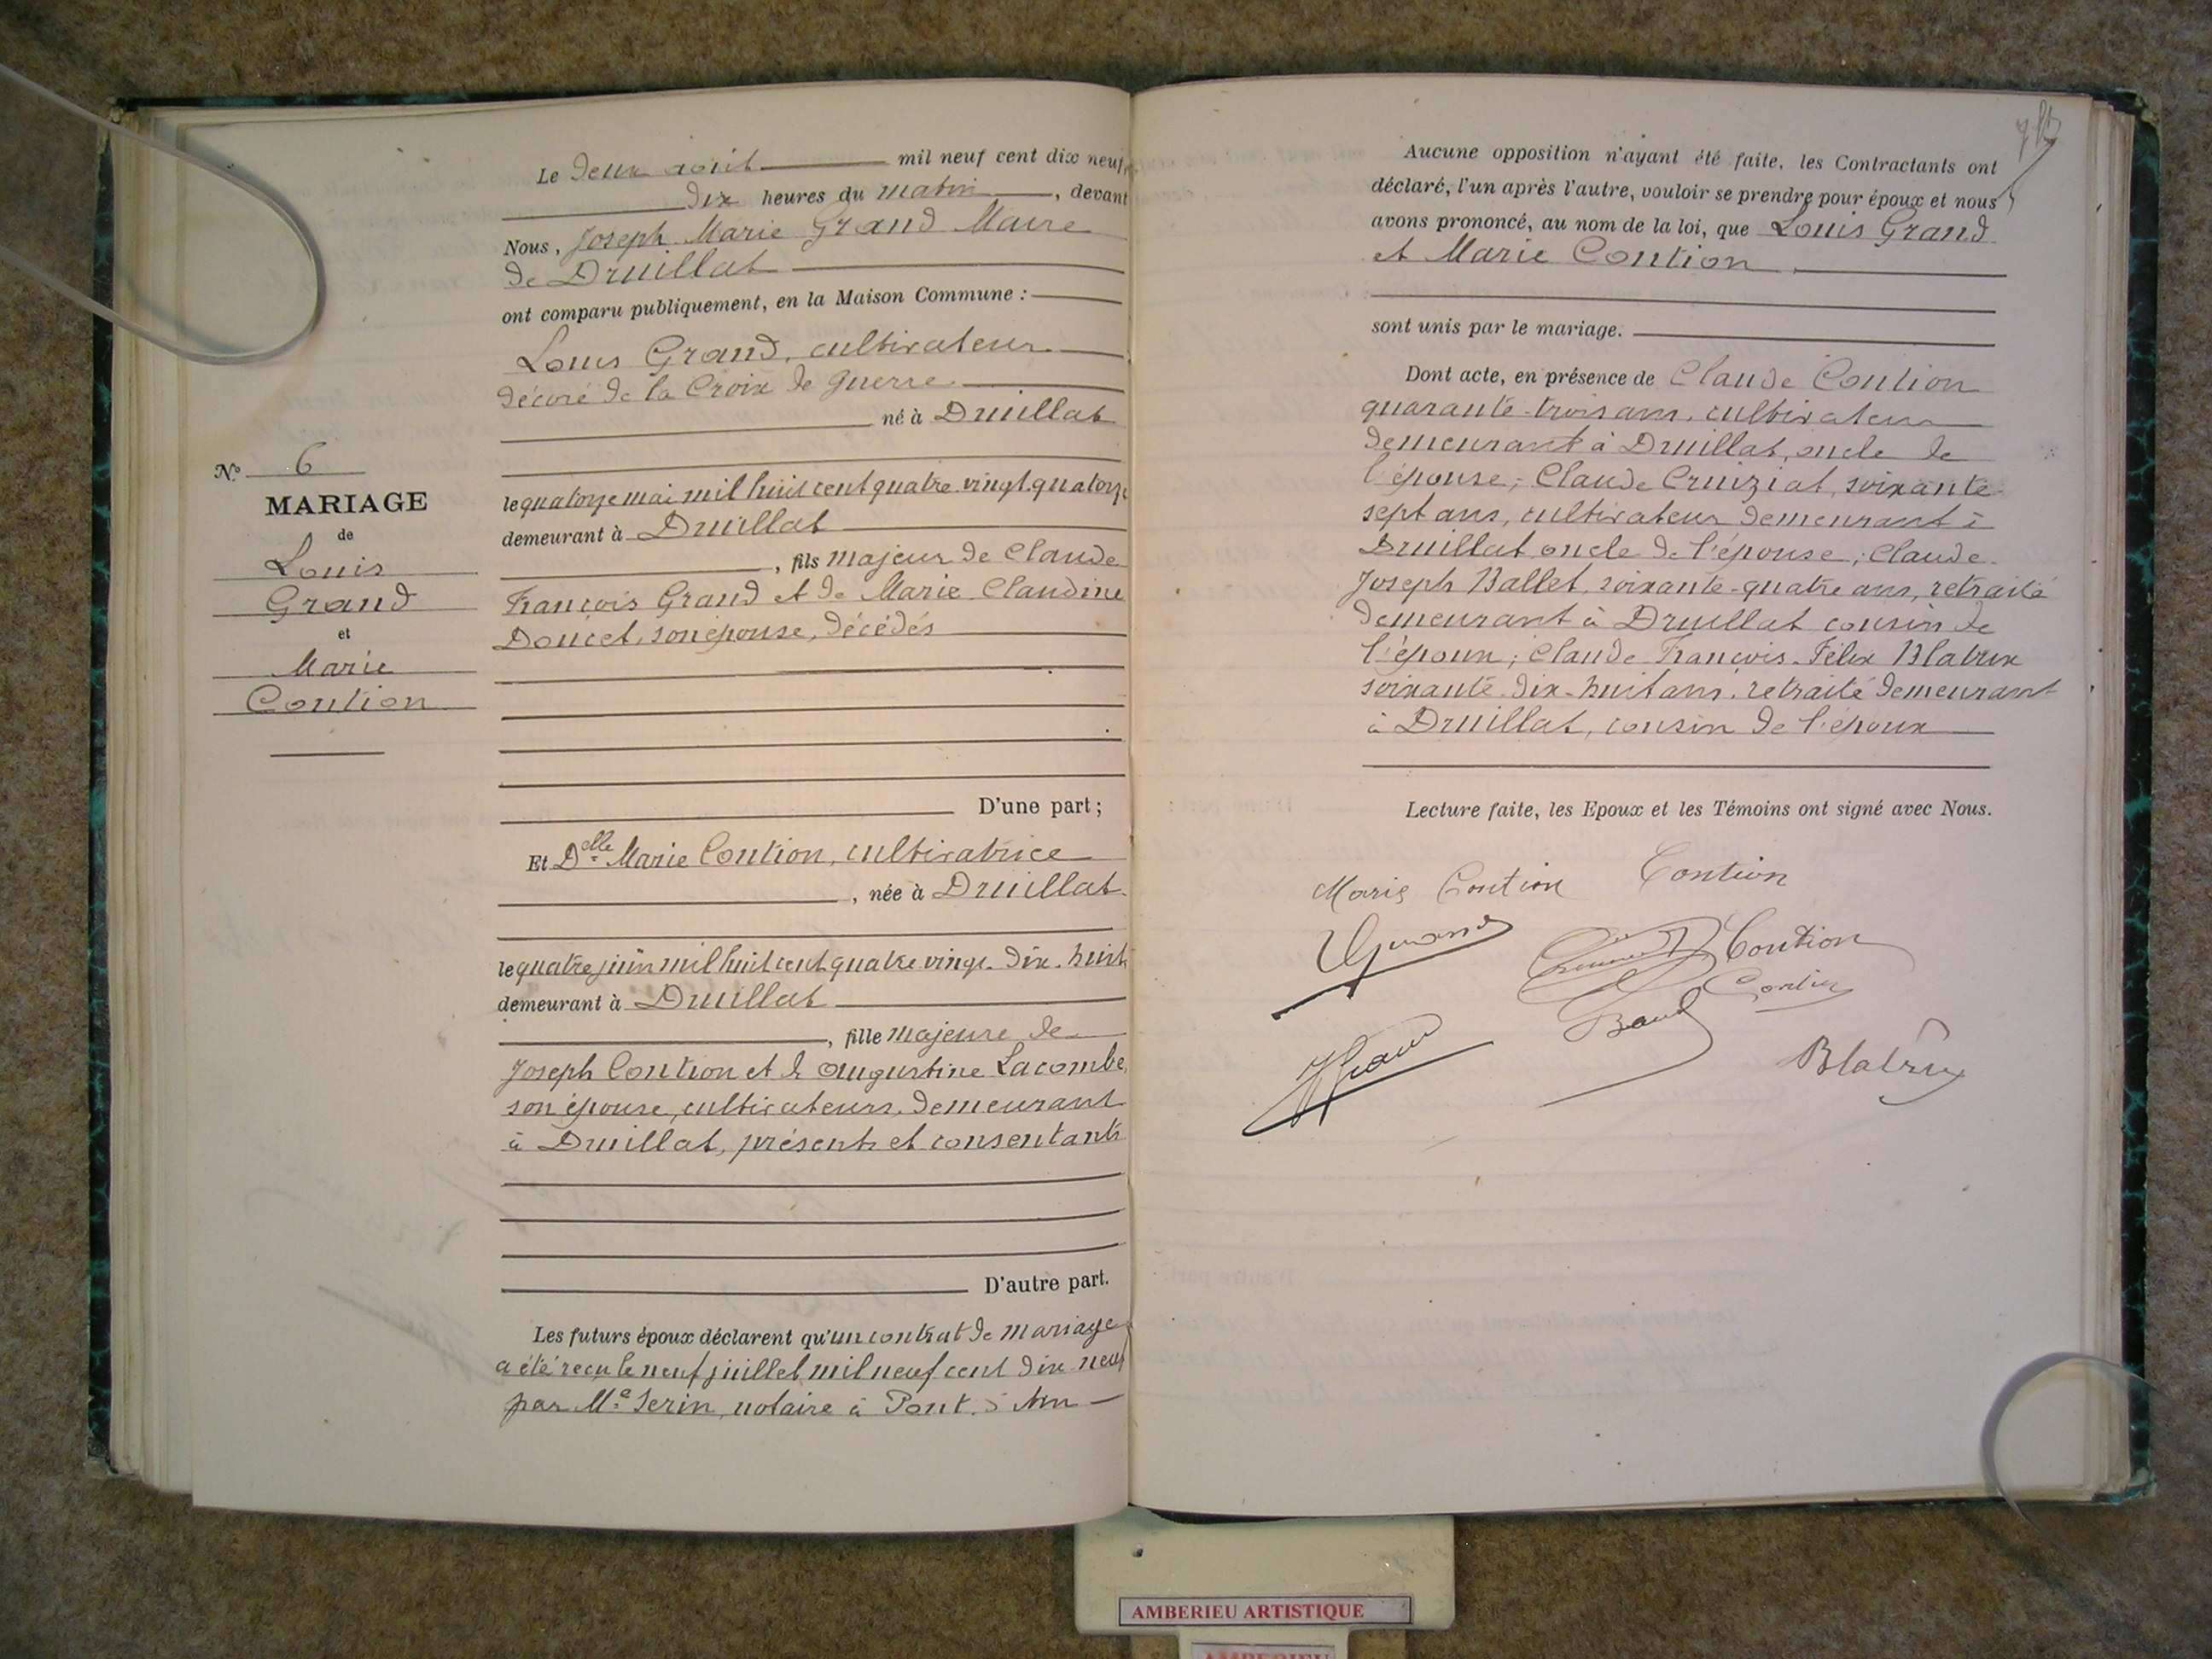 Le deux août mil neuf cent dix neuf,
dix heures du matin, devant
Nous, Joseph Marie Grand Maire
de Druillat
ont comparu publiquement, en la Maison Commune :
Louis Grand, cultivateur
décoré de la Croix de Guerre
né à Druillat
le quatorze mai mil huit cent quatre vingt quatorze
demeurant à Druillat
, fils majeur de Claude
François Grand et de Marie Claudine
Doucet, son épouse, décédés
D'une part ;
Et Delle Marie Contion, cultivatrice
, née à Druillat
le quatre juin mil huit cent quatre vingt-dix-huit
demeurant à Druillat
, fille majeure de
Joseph Contion et de Augustine Lacombe,
son épouse, cultivateurs, demeurant
à Druillat, présents et consentants
D'autre part.
Les futurs époux déclarent qu'un contrat de mariage
a été reçu le neuf juillet mil neuf cent dix neuf
par Me Serin, notaire à Pont d'Ain
No 6
MARIAGE
de
Louis
Grand
et
Marie
Contion
Aucune opposition n'ayant été faite, les Contractants ont
déclaré, l'un après l'autre, vouloir se prendre pour époux et nous
avons prononcé, au nom de la loi, que Louis Grand
et Marie Contion
sont unis par le mariage.
Dont acte, en présence de Claude Contion
quarante-trois ans, cultivateur
demeurant à Druillat, oncle de
l'épouse ; Claude Cruiziat, soixante-
sept ans, cultivateur demeurant à
Druillat oncle de l'épouse ; Claude
Joseph Ballet, soixante-quatre ans, retraité
demeurant à Druillat cousin de
l'époux ; Claude François Félix Blatrix
soixante-dix-huit ans, retraité demeurant
à Druillat, cousin de l'époux
Lecture faite, les Epoux et les Témoins ont signé avec Nous.
Marie Contion Contion
Grand Contion
Contion
Blatrix
AMBERIEU ARTISTIQUE
AMBERIEU